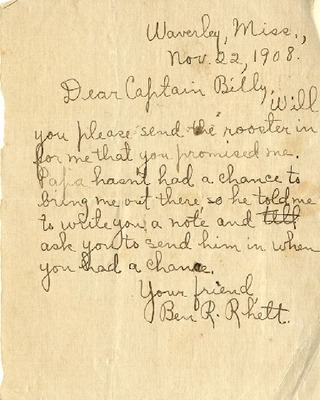 Waverley, Miss.,
Nov. 22, 1908.
Dear Captain Billy,
Will
you please send the rooster in
for me that you promised me.
Papa hasn't had a chance to
bring me out there so he told me
to write you a note and tell
ask you to send him in when
you had a chance.
Your friend,
Ben R. Rhett.